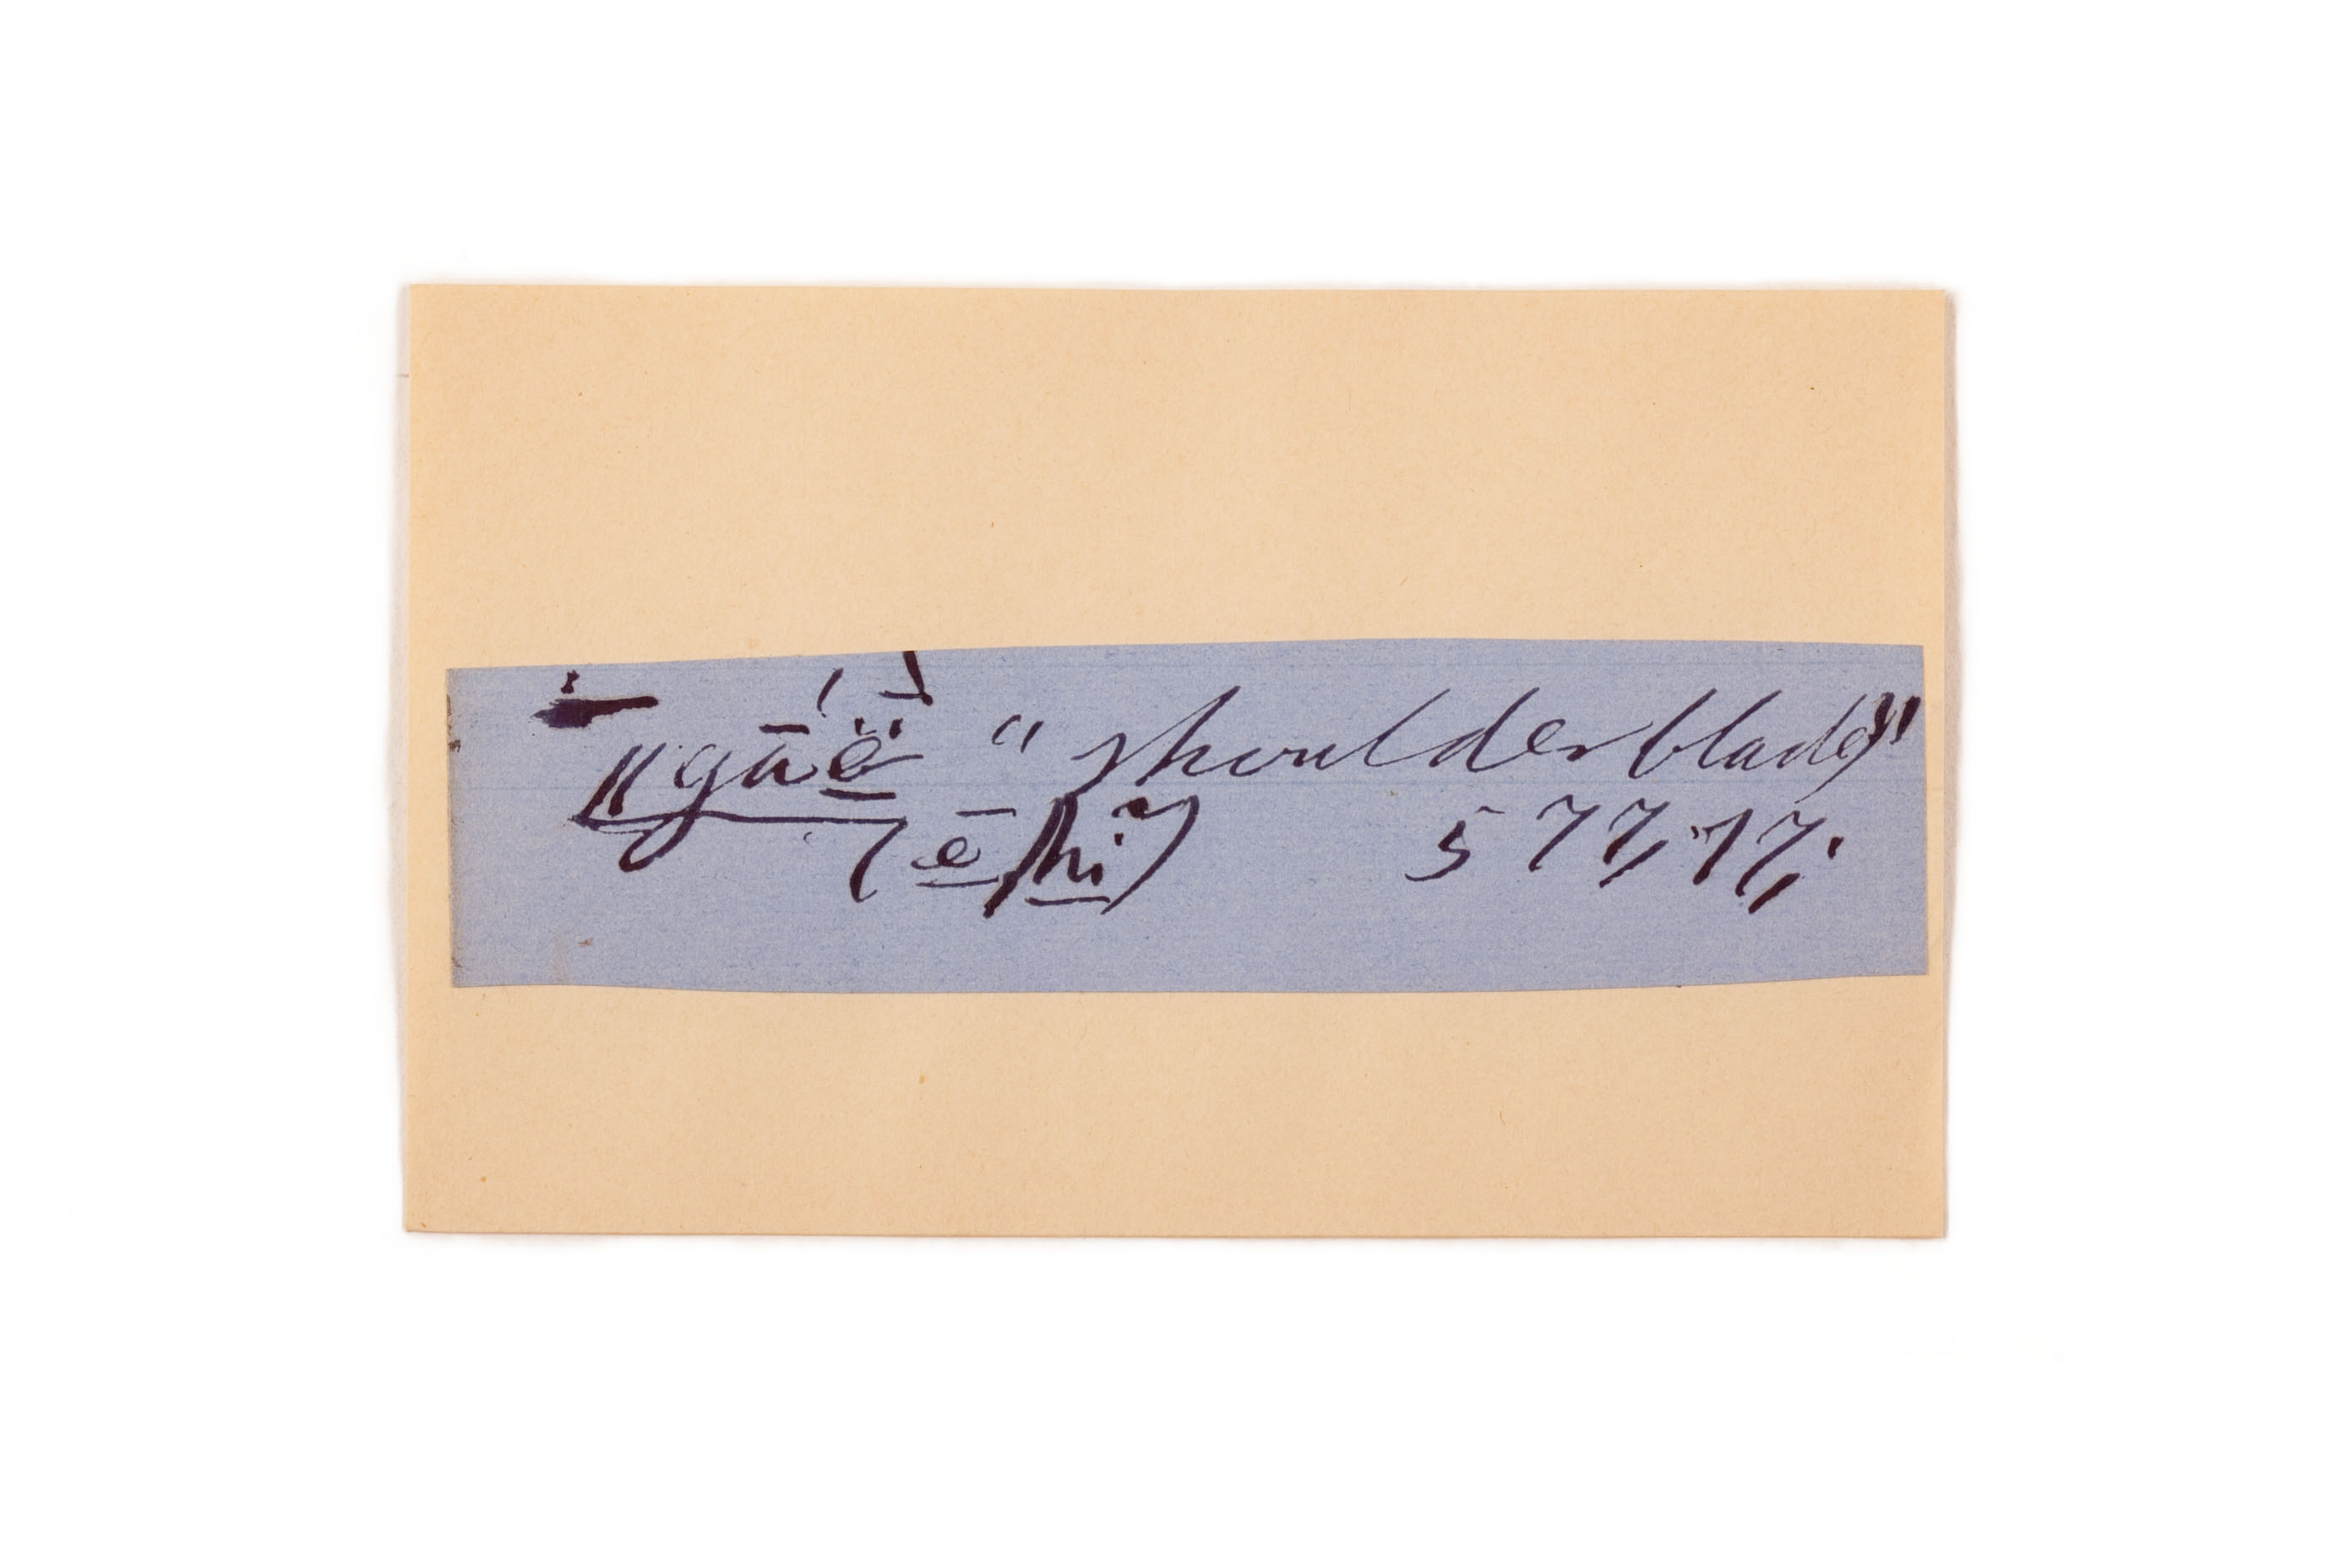 ‖gā́ë̱ " shoulderblade"
(ē̱/hi̱) 577,17;